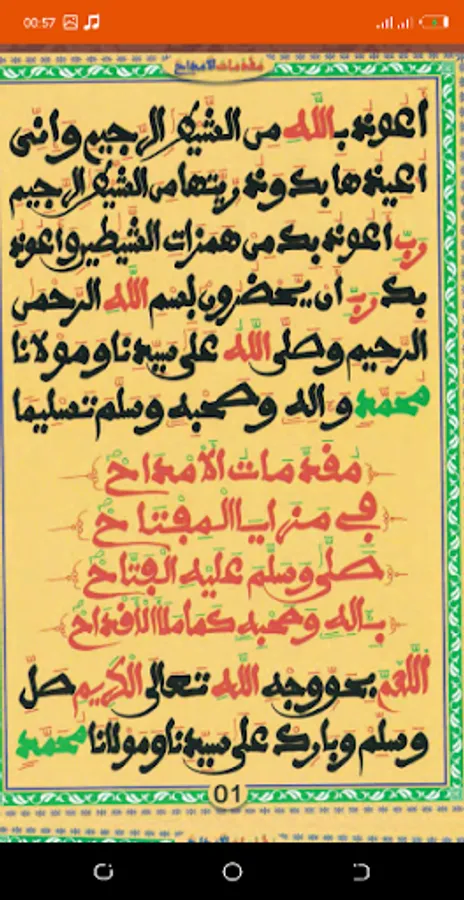 00:57
مقدمات الامداح
أعوذ بالله من الشيطن الرجيم وإنى
أعيذها بك وذريتها من الشيطن الرجيم
رب أعوذ بك من همزات الشيطين وأعوذ
بك رب أن يحضرون بسم الله الرحمن
الرحيم وصلى الله على سيدنا ومولانا
محمد وءاله وصحبه وسلم تسليما
مقدمات الأمداح
في مزايا المفتاح
صلى وسلم عليه الفتاح
بئاله وصحبه كماملا الأقداح
اللهم بحق وجه الله تعالى الكريم صل
وسلم وبارك على سيدنا ومولانا محمد
01